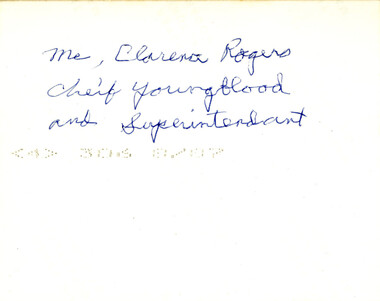 Me, Clarena Rogers
Cheif Youngblood
and Superintendant
<4> 306 0/07